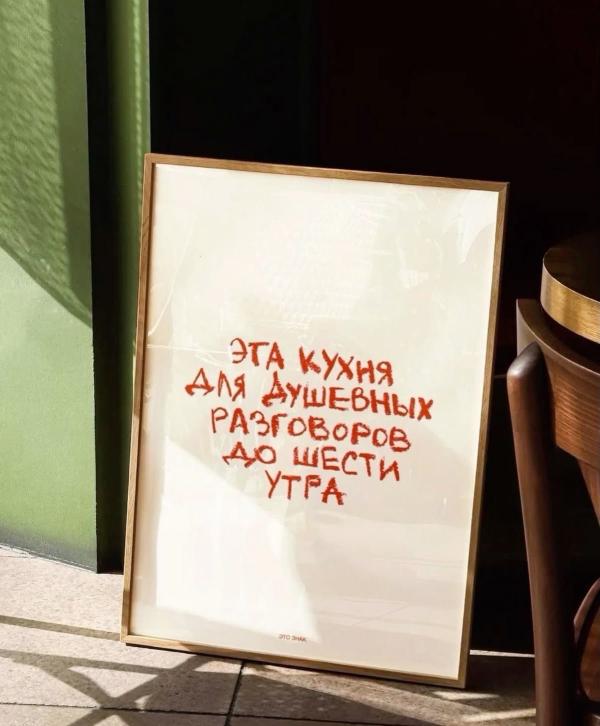 ЭТА КУХНЯ
ДЛЯ ДУШЕВНЫХ
РАЗГОВОРОВ
ДО ШЕСТИ
УТРА
ЭТО ЗНАК